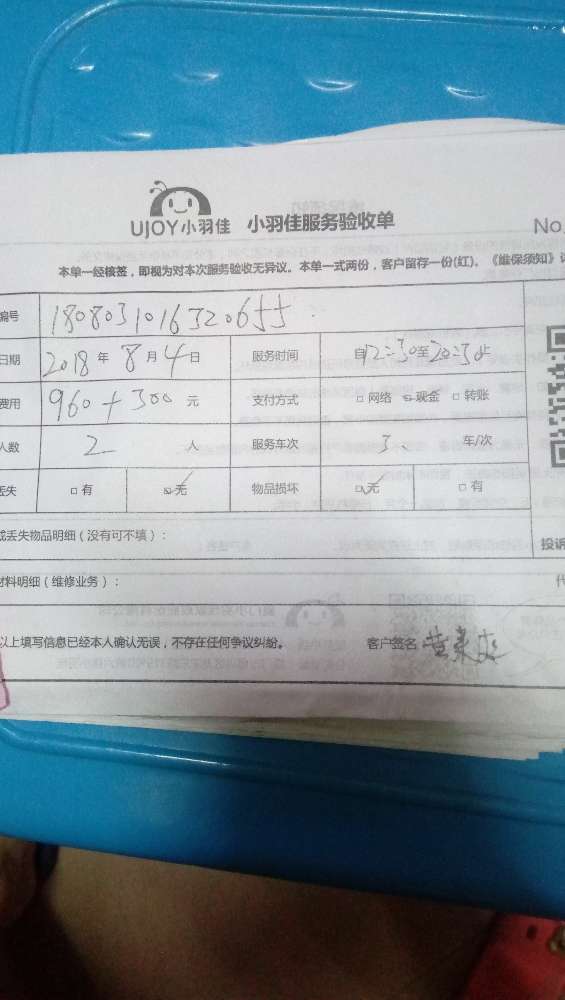 UJOY小羽佳 小羽佳服务验收单
No.
本单一经核签，即视为对本次服务验收无异议。本单一式两份，客户留存一份(红)。《维保须知》
编号 1808031016320655
日期 2018年8月4日 服务时间 自12:30至20:30止
费用 960+300元 支付方式 □网络 ☑现金 □转账
人数 2人 服务车次 3. 车/次
丢失 □有 ☑无 物品损坏 ☑无 □有
或丢失物品明细（没有可不填）： 投诉
材料明细（维修业务）：
以上填写信息已经本人确认无误，不存在任何争议纠纷。 客户签名